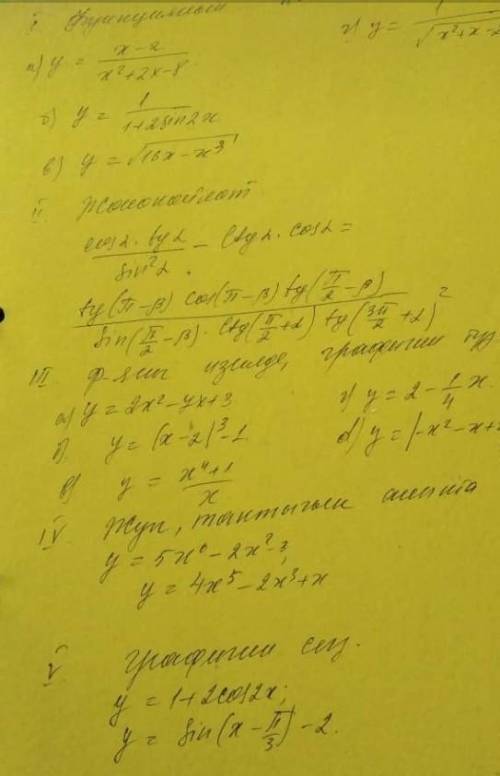 I Функциянын
а) y = (x-2)/(x²+2x-8)
г) y = 1/√(x²+x-
б) y = 1/(1+2sin2x)
в) y = √(16x-x³)
II Жөнөкөйлөт
(cosα · tgα)/(sin²α) - ctgα · cosα =
(tg(π-β) cos(π-β) tg(π/2-β))/(sin(π/2-β) · ctg(π/2+α) tg(3π/2+α))²
III Ф-яны изилде, графигин
а) y = 2x²-4x+3
г) y = 2-1/4 x
б) y = (x-2)³-1
d) y = |-x²-x+
в) y = (x⁴+1)/x
IV Жуп, тактыгын аныкта
y = 5x⁶-2x²-3;
y = 4x⁵-2x³+x
V Графигин сыз.
y = 1+2cos2x;
y = sin(x-π/3)-2.